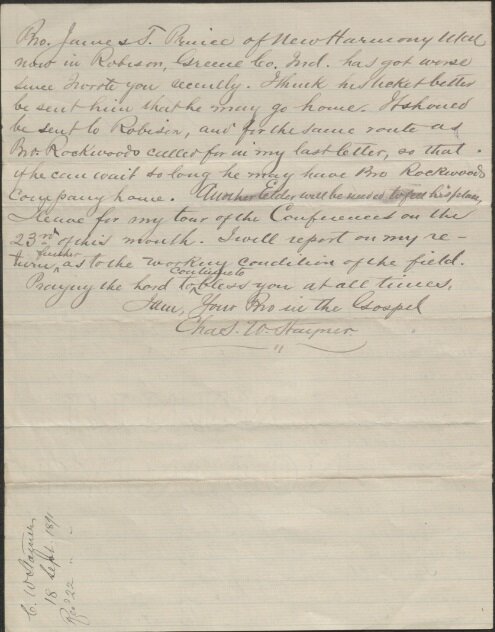 Bro. James T. Prince of New Harmony Utah
now in Robison, Greene Co. Ind. has got worse
since I wrote you recently. I think his ticket better
be sent him that he may go home. It should
be sent to Robison, and for the same route as
Bro. Rockwoods called for in my last letter, so that
if he can wait so long he may have Bro Rockwoods
company home. Another Elder will be needed to fill his place,
I leave for my tour of the Conferences on the
23rd of this month. I will report on my re-
further
turn, as to the working condition of the field.
continue to
Praying the Lord to bless you at all times,
I am, Your Bro in the Gospel
Chas. W. Stayner
C. W. Stayner
18 Sept. 1891
Recd 22 " "